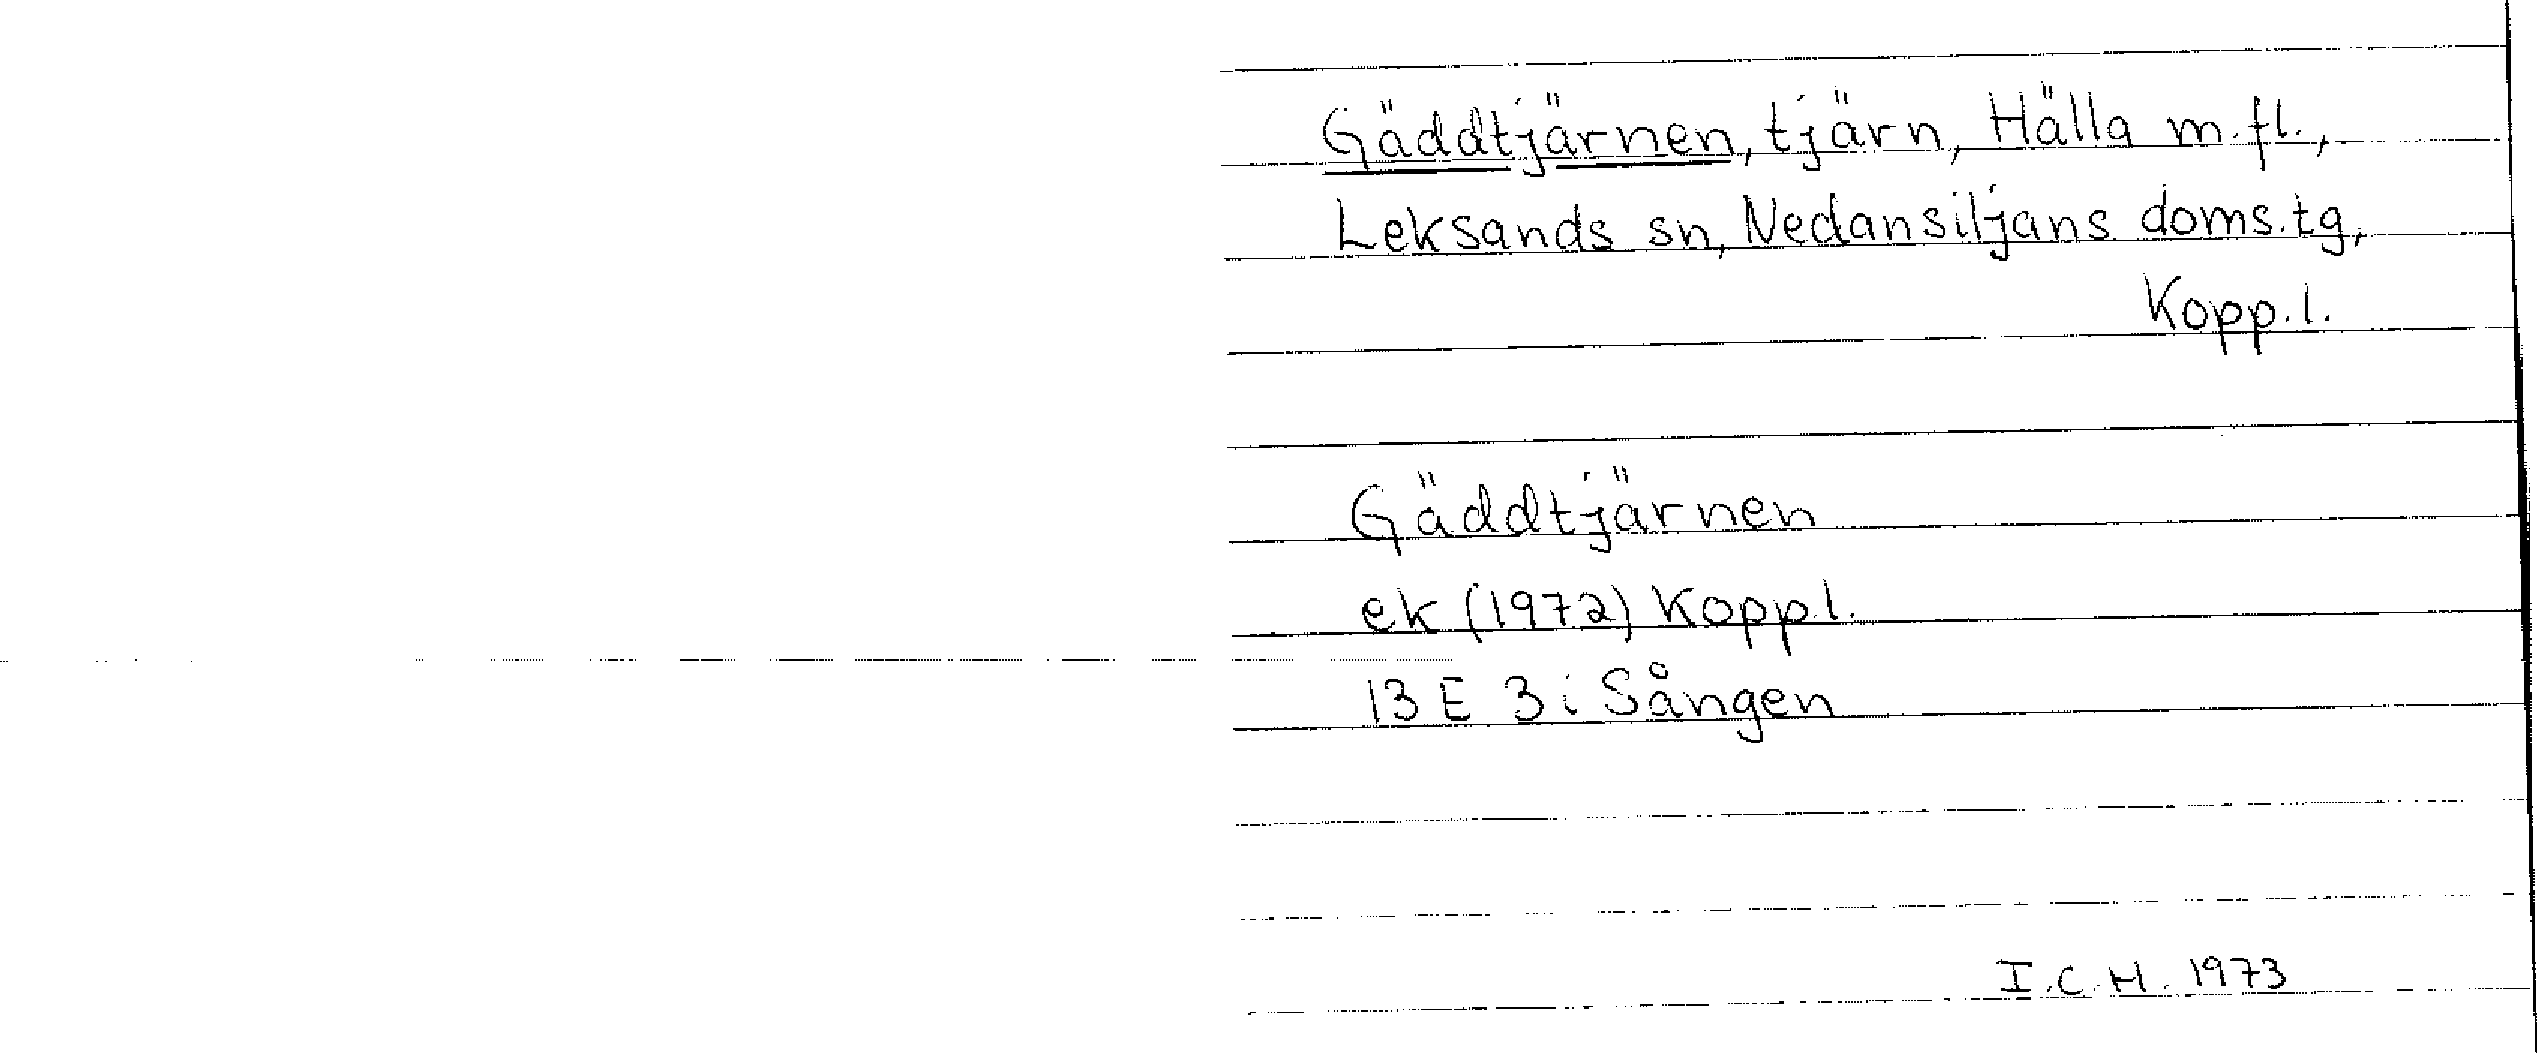 Gäddtjärnen, tjärn, Hälla m.fl.,
Leksands sn, Nedansiljans doms.tg,
Kopp.l.
Gäddtjärnen
ek (1972) Kopp.l.
13 E 3 i Sången
I.C.H. 1973